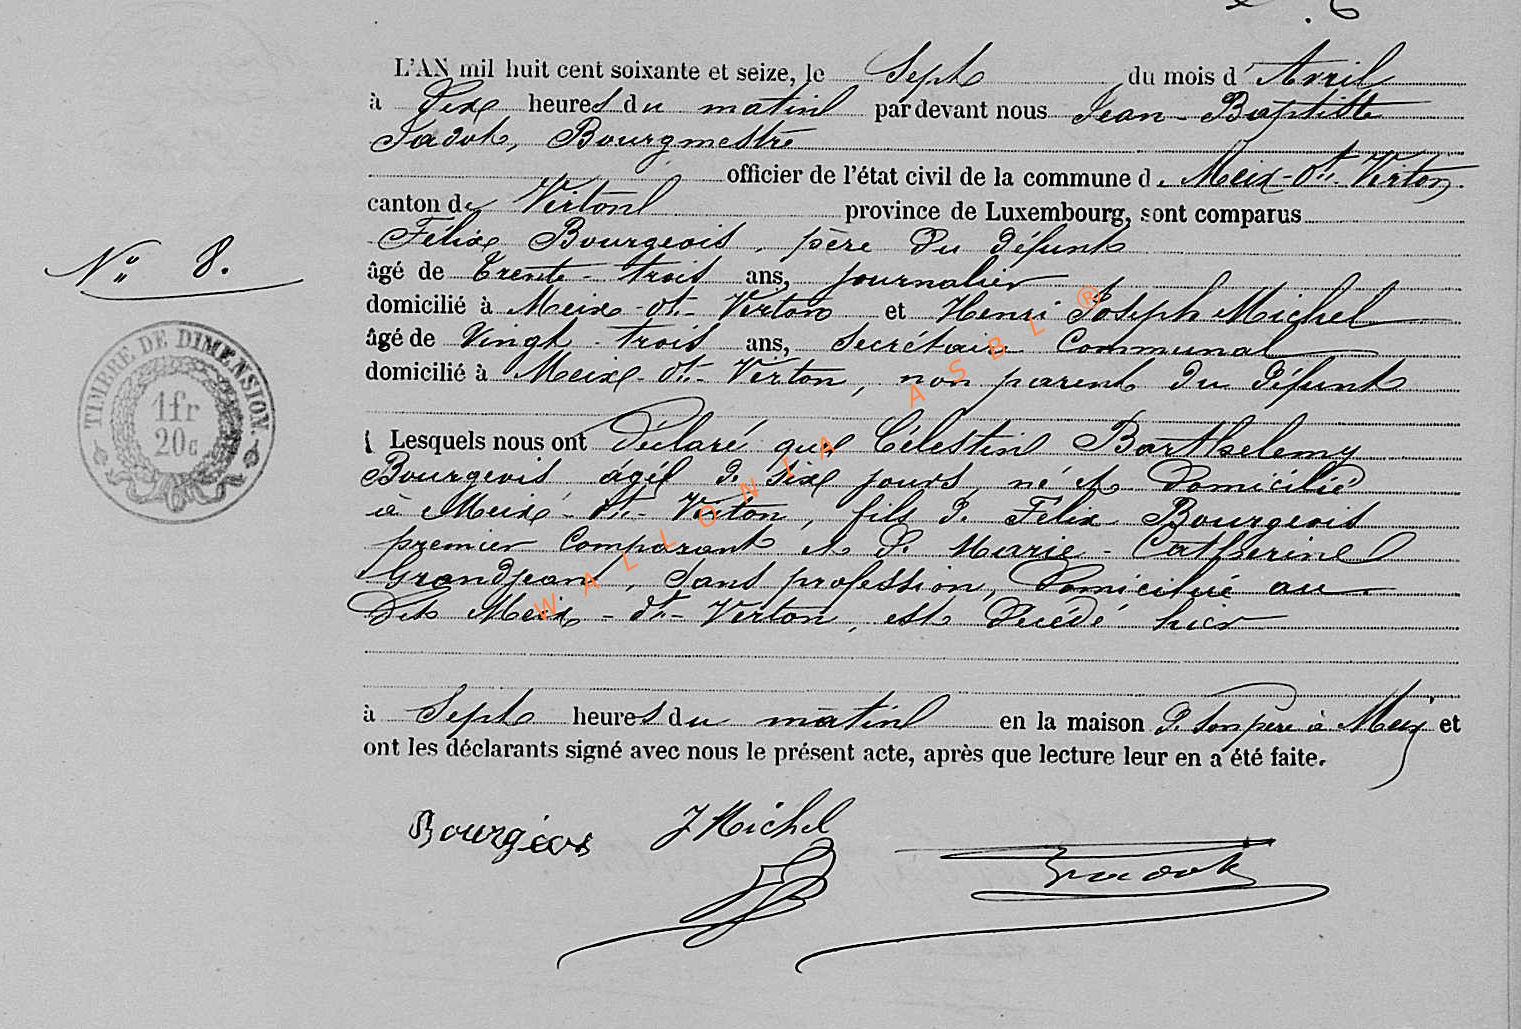 L'AN mil huit cent soixante et seize, le Sept du mois d'Avril
à Dix heures du matin par devant nous Jean-Baptiste
Jadot, Bourgmestre
officier de l'état civil de la commune de Meix-dt-Virton
canton de Virton province de Luxembourg, sont comparus
Félix Bourgeois, père du défunt
âgé de trente-trois ans, journalier
domicilié à Meix-dt-Virton et Henri Joseph Michel
âgé de Vingt-trois ans, Secrétaire Communal
domicilié à Meix-dt-Virton, non parent du défunt
Lesquels nous ont déclaré que Célestin Barthelemy
Bourgeois âgé de six jours, né et domicilié
à Meix-dt-Virton, fils de Félix Bourgeois
premier Comparant et de Marie-Catherine
Grandjean, sans profession, domiciliée au
dit Meix-dt-Virton, est décédé hier
à Sept heures du matin en la maison de son père à Meix et
ont les déclarants signé avec nous le présent acte, après que lecture leur en a été faite.
No 8.
TIMBRE DE DIMENSION
1fr
20c
Bourgeois JMichel Jadot
WALLONIA ASBL ®